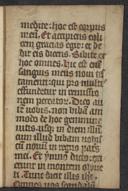 medite: hoc est corpus
meu. Et accipiens cali
cem gracias egit: et de
dit eis dicens. Bibite ex
hoc omnes. hic est em
sanguis meus noui te
tamenti: qui pro multis
effundetur in remissio
nem peccatorum. Dico au
te uobis. non bibā am
modo de hoc genimine
uitis. usqz in diem illū
cum illud bibam nobis
cū nouū in regno patris
mei. Et ymno dicto: exi
erunt in montem oliue
ti. Tunc dicit illis ihc
Omnes uos scandalū